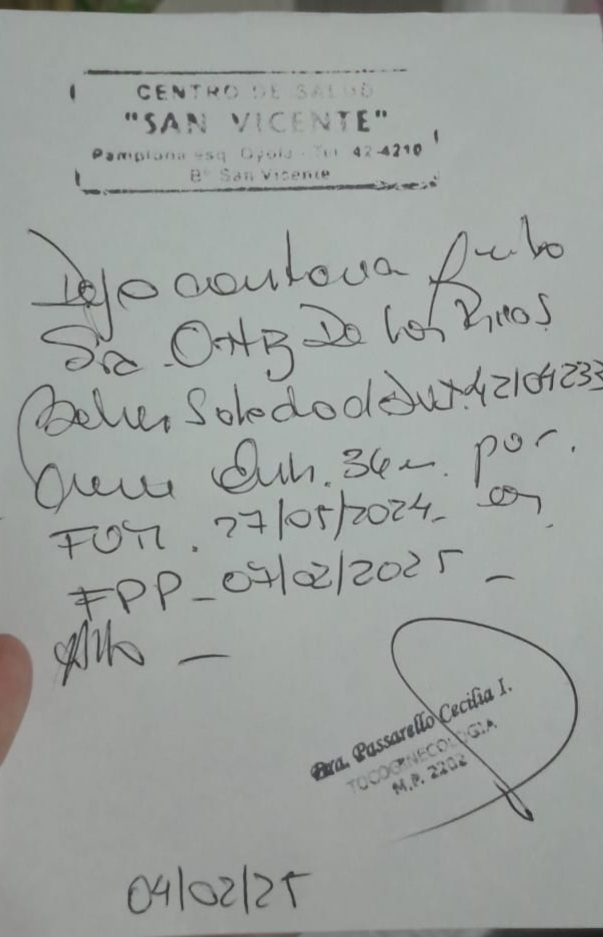 CENTRO DE SALUD
"SAN VICENTE"
Pamplona esq. Oyola - Tel. 42-4210
Bº San Vicente
Dejo constancia
Sra. Ortiz De Los Rios
Belen Soledad 42104233
por
FUM. 27/05/2024_ con
FPP_ 07/02/2025 _
Dra. Passarello Cecilia I.
TOCOGINECOLOGIA
M.P. 2202
04/02/25